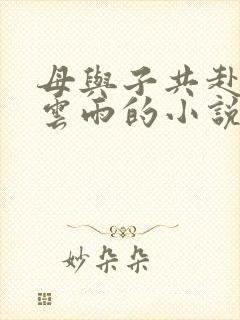 母與子共赴
雲雨的小說
妙朵朵